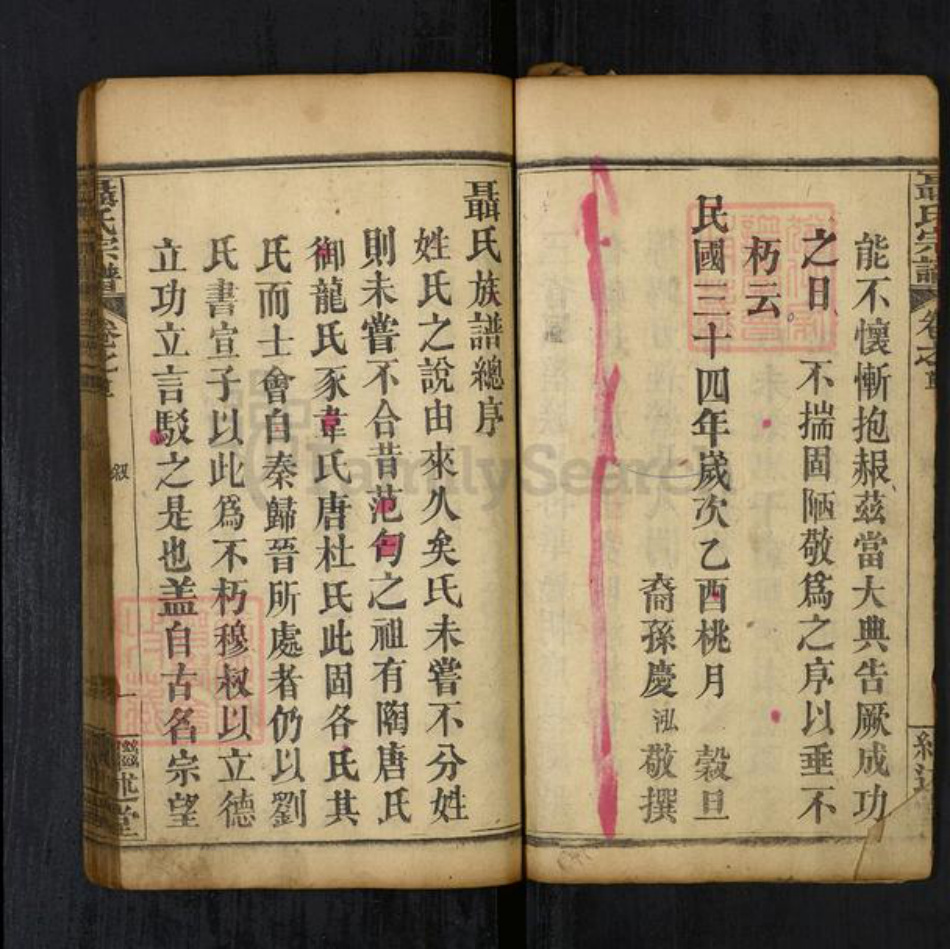 能不懷慚抱赧茲當大典告厥成功
之日不揣固陋敬爲之序以垂不
朽云
民國三十四年歲次乙酉桃月 穀旦
裔孫慶泓敬撰
聶氏族譜總序
姓氏之說由來久矣氏未嘗不分姓
則未嘗不合昔范匄之祖有陶唐氏
御龍氏豕韋氏唐杜氏此固各氏其
氏而士會自秦歸晉所處者仍以劉
氏書宣子以此爲不朽穆叔以立德
立功立言駁之是也盖自古名宗望
聶氏宗譜
卷之首
叙
一
述堂
FamilySearch